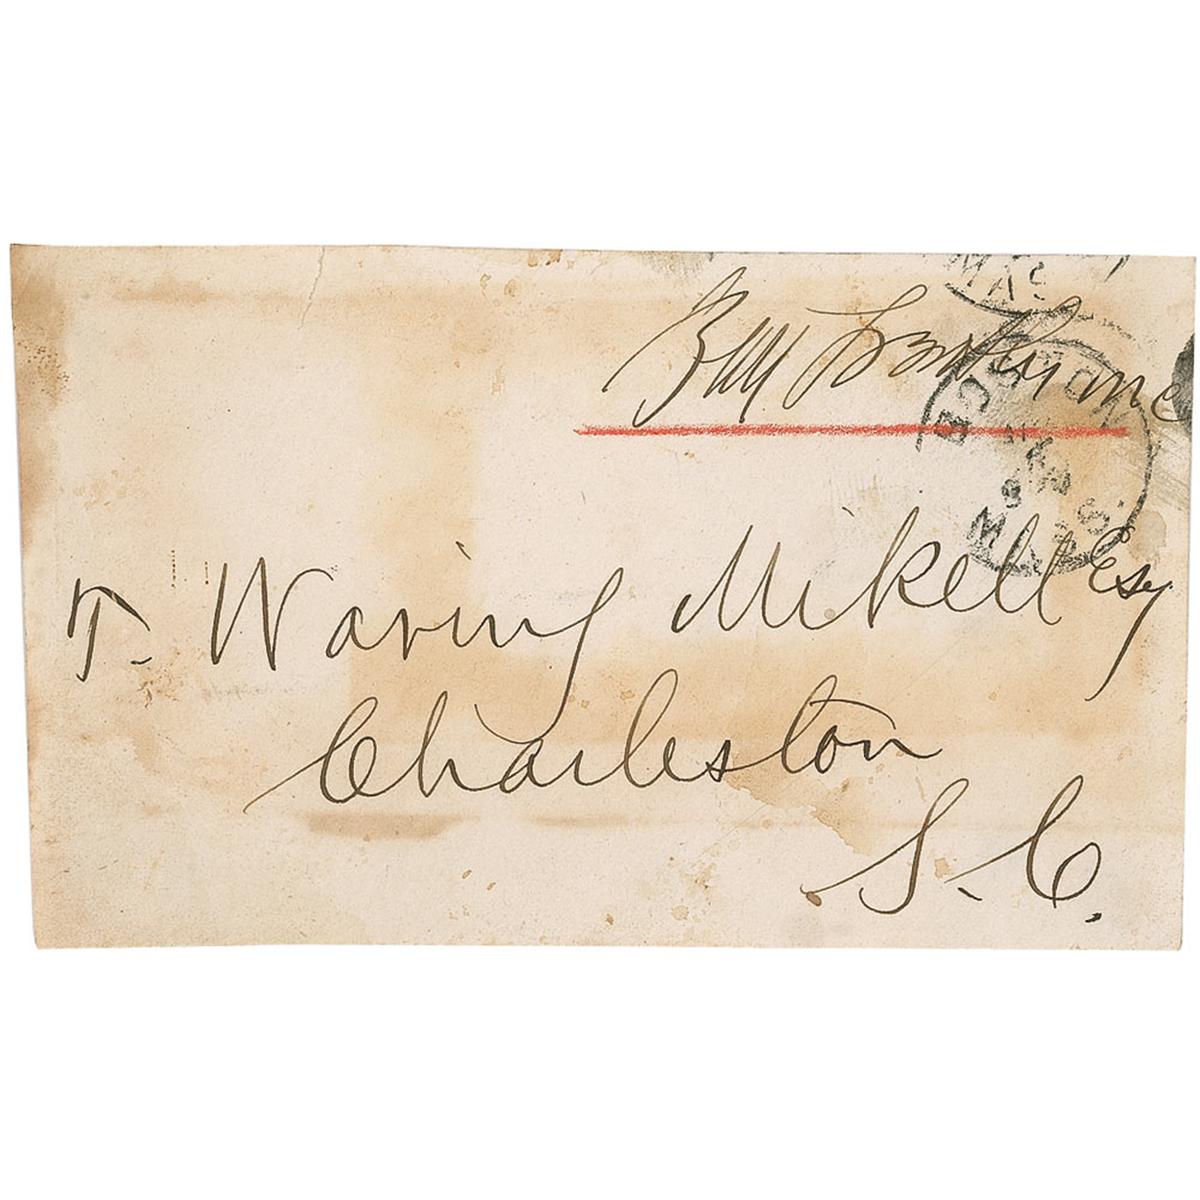 MAS
BOSTON
MAR
9
MASS.
T. Waring Mikell Esq
Charleston
S.C.